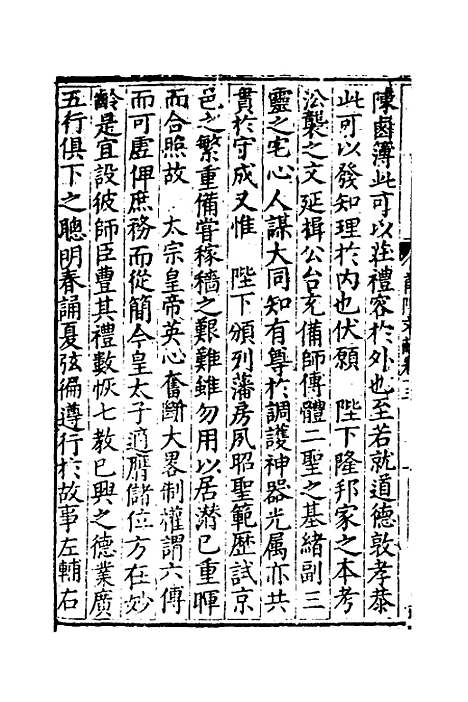 陳鹵簿此可以莊禮容於外也至若就道德敦孝恭
此可以發知理於内也伏願　陛下隆邦家之本考
㳂襲之文延揖公台充備師傅體二聖之基緒副三
靈之宅心人謀大同知有尊於調護神器光属亦共
貫於守成又惟　陛下頒列藩房夙昭聖範歷試京
邑之繁重備甞稼穡之艱難雖勿用以居潜已重暉
而合照故　太宗皇帝英心奮斷大畧制權謂六傅
而可虚俾庶務而從簡今皇太子適膺儲位方在妙
齡是宜設彼師臣豊其禮數恢七教已興之德業廣
五行俱下之聰明春誦夏弦徧遵行於故事左輔右